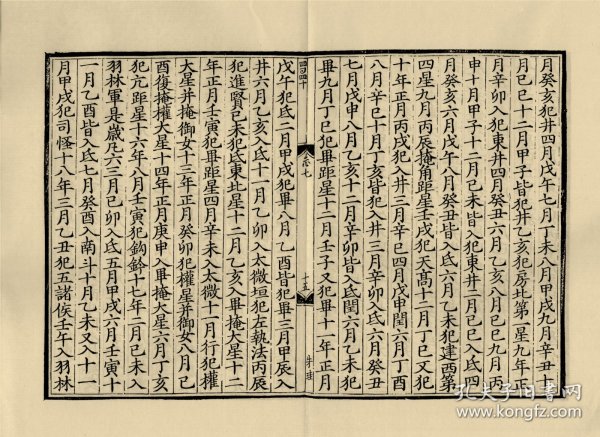 月癸亥犯井四月戊午七月丁未八月甲戌九月辛丑十
月己巳十二月甲子皆犯井乙亥犯房北第一星九年正
月辛卯入犯東井四月癸丑六月乙亥八月己巳九月丙
申十月甲子十二月己未皆入犯東井三月己巳入氐四
月癸亥六月戊午八月癸丑皆入氐六月乙未犯建西第
四星九月丙辰掩角距星壬戌犯天高十二月丁巳又犯
十年正月丙戌犯入井三月辛巳四月戊申閏六月丁酉
八月辛巳十月丁亥皆犯入井三月辛卯入氐六月癸丑
七月戊申八月乙亥十二月辛卯皆入氐閏六月乙未犯
畢九月丁巳犯畢距星十二月壬子又犯畢十一年正月
卷七
十五
戊午犯氐二月甲戌犯畢八月乙酉皆犯畢三月甲辰入
井六月乙亥入氐十一月乙卯入太微垣犯左執法丙辰
犯進賢己未犯氐東北星十二月乙亥入畢掩大星十二
年正月壬寅犯畢距星四月辛未入太微十一月行犯權
大星并掩御女十三年正月癸卯犯權星并御女八月己
酉復掩權大星十四年正月庚申入畢掩大星六月丁亥
犯亢距星十六年八月壬寅犯鈎鈐十七年二月己未入
羽林軍是歲凡六三月己卯入氐五月甲戌六月壬寅十
一月乙酉皆入氐七月癸酉入南斗十月乙未又入十一
月甲戌犯司怪十八年三月乙丑犯五諸侯壬午入羽林
孔夫子旧书网
www.kongfz.com